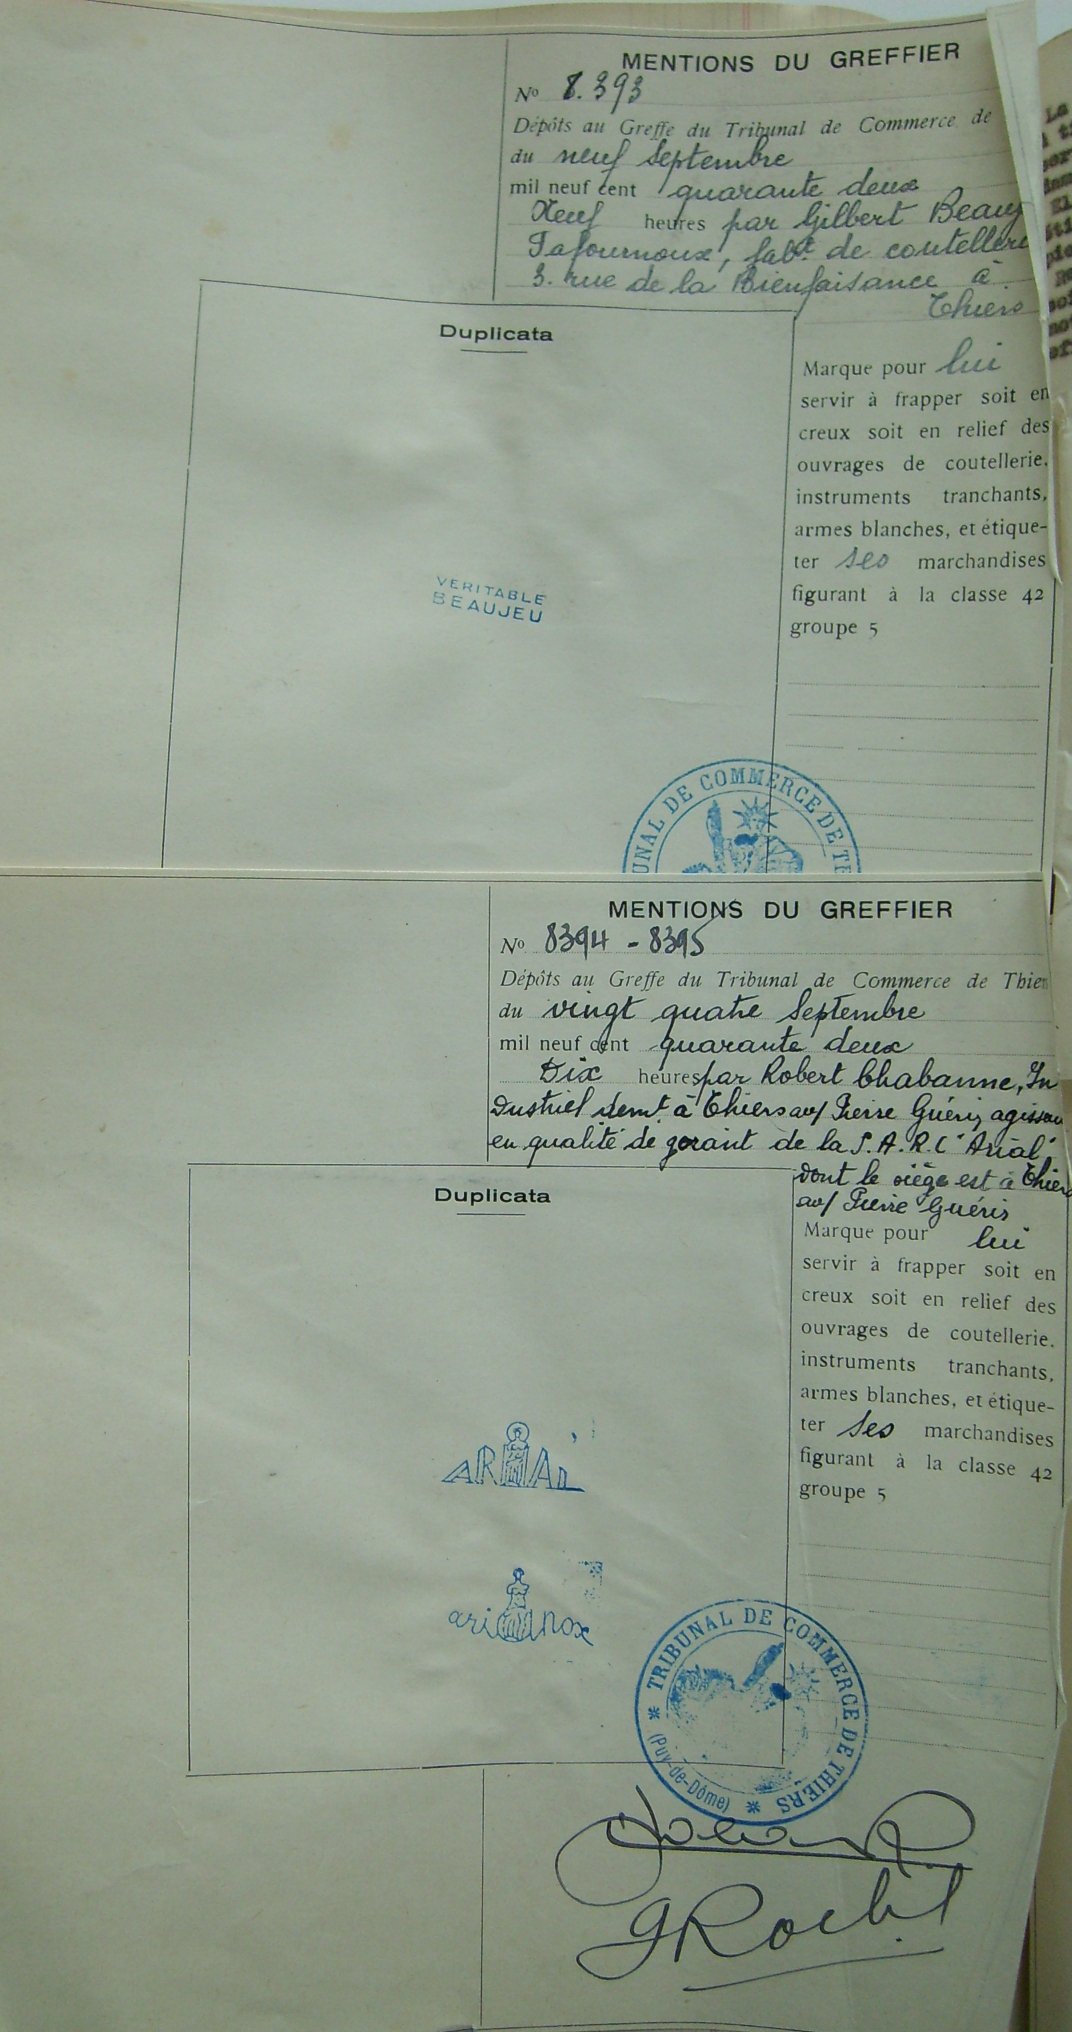 MENTIONS DU GREFFIER
No 8.393
Dépôts au Greffe du Tribunal de Commerce de
du neuf Septembre
mil neuf cent quarante deux
Neuf heures par Gilbert Beauj
Lafournoux, fabt de coutellerie
3. rue de la Bienfaisance à
Thiers
Duplicata
Marque pour lui
servir à frapper soit en
creux soit en relief des
ouvrages de coutellerie,
instruments tranchants,
armes blanches, et étique-
ter ses marchandises
figurant à la classe 42
groupe 5
VERITABLE
BEAUJEU
UNAL DE COMMERCE DE TH
MENTIONS DU GREFFIER
No 8394 - 8395
Dépôts au Greffe du Tribunal de Commerce de Thier
du vingt quatre Septembre
mil neuf cent quarante deux
Dix heures par Robert Chabanne, In
dustriel demt à Thiers av/ Pierre Guérin agissan
en qualité de gérant de la S.A.R.L "Arial"
dont le siège est à Thiers
av/ Pierre Guérin
Duplicata
Marque pour lui
servir à frapper soit en
creux soit en relief des
ouvrages de coutellerie,
instruments tranchants,
armes blanches, et étique-
ter ses marchandises
figurant à la classe 42
groupe 5
ARIAL
arinox
TRIBUNAL DE COMMERCE DE THIERS
(Puy-de-Dôme)